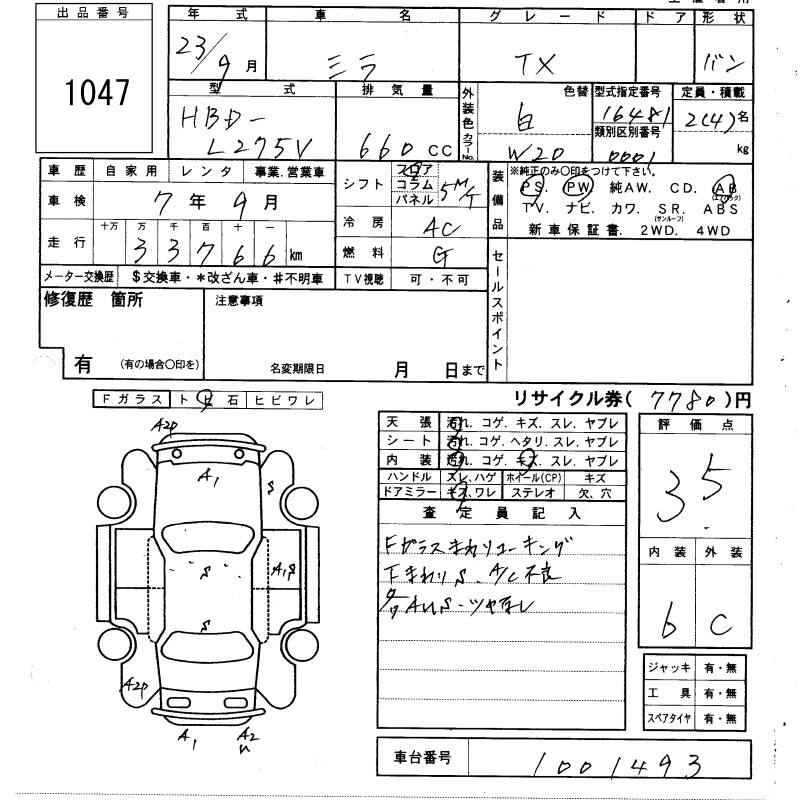 出品番号
1047
年 式 車 名 グ レ ー ド ド ア 形 状
23/9月 ミラ TX バン
型 式 排 気 量 外装色 カラーNo. 色替 型式指定番号 定員・積載
HBD- 白 16481 2(4)名
類別区別番号
L275V 660 CC W20 0001 kg
車 歴 自 家 用 レ ン タ 事業.営業車
車 検 7 年 9 月
走 行 十万 万 千 百 十 一
3 3 7 6 6 km
メーター交換歴 $交換車・*改ざん車・#不明車
シフト フロア コラム パネル 5 M/T
冷 房 AC
燃 料 G
TV視聴 可・不可
装備品
※純正のみ〇印をつけて下さい。
PS. PW. 純AW. CD. AB (エアバック)
TV. ナビ. カワ. SR. ABS
(サンルーフ)
新車保証書. 2WD. 4WD
セールスポイント
修復歴 箇所
有 (有の場合〇印を)
注意事項
名変期限日 月 日まで
リサイクル券( 7780 )円
Fガラス ト ビ 石 ヒビワレ
天 張 汚れ. コゲ. キズ. スレ. ヤブレ
シート 汚れ. コゲ. ヘタリ. スレ. ヤブレ
内 装 汚れ. コゲ. キズ. スレ. ヤブレ
ハンドル スレ.ハゲ ホイール(CP) キズ
ドアミラー キズ.ワレ ステレオ 欠、穴
査 定 員 記 入
Fガラスまわりコーキング
下まわりS. A/C不良
A U S・ツヤ
評 価 点
3.5
内 装 外 装
6 C
ジャッキ 有・無
工 具 有・無
スペアタイヤ 有・無
A2P
A1
S
S
A1S
S
A2P
A1
A2
車台番号 1001493